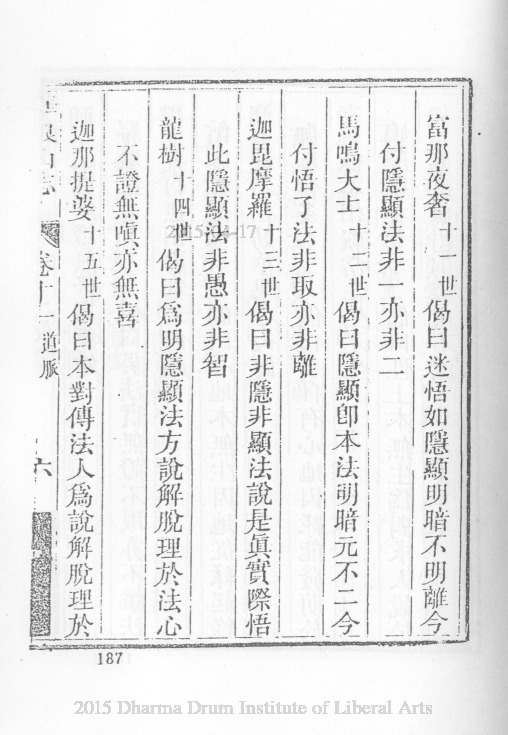 富那夜奢十一世偈曰迷悟如隱顯明暗不明離今
付隱顯法非一亦非二
馬鳴大士十二世偈曰隱顯卽本法明暗元不二今
付悟了法非取亦非離
迦毘摩羅十三世偈曰非隱非顯法說是眞實際悟
此隱顯法非愚亦非智
龍樹十四世偈曰爲明隱顯法方說解脫理於法心
不證無嗔亦無喜
迦那提婆十五世偈曰本對傳法人爲說解脫理於
山志 卷十一 道脈 六
187
2015 Dharma Drum Institute of Liberal Arts